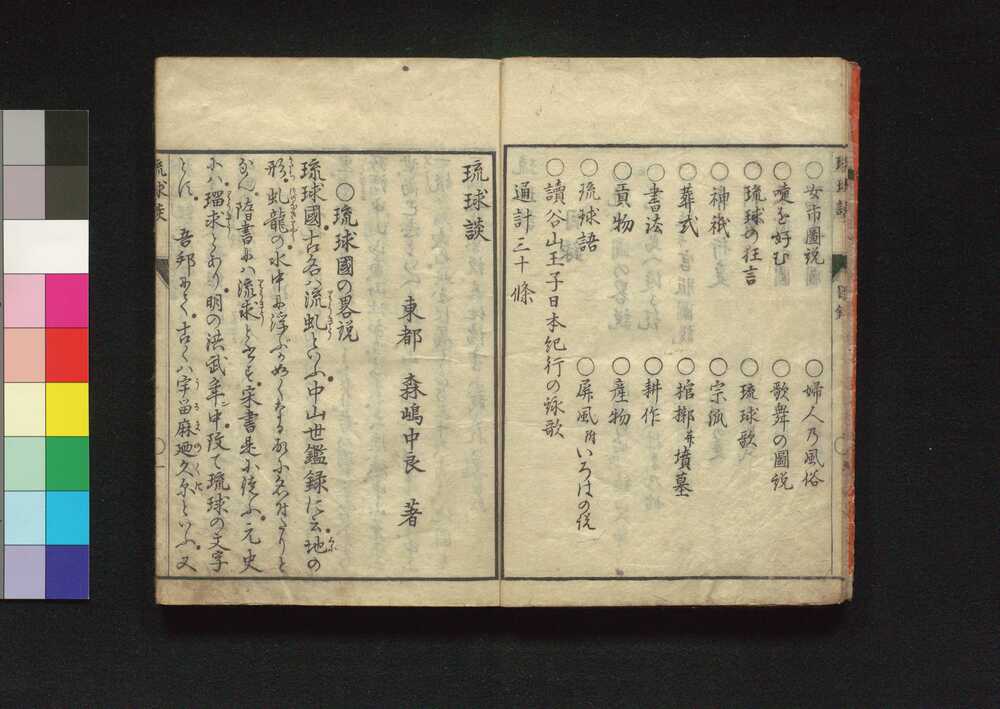 琉球談 目録
○女市圖説 ○婦人乃風俗
○噯を好む ○歌舞の圖説
○琉球の狂言 ○琉球歌
○神祇 ○宗派
○葬式 ○棺槨并墳墓
○書法 ○耕作
○貢物 ○産物
○琉球語 ○屏風附いろはの説
○讀谷山王子日本紀行の詠歌
通計三十條
琉球談
東都 森嶋中良 著
○琉球國の畧説
琉球國古名ハ流虬といふ中山世鑑録に云地の
形虬龍の水中に浮ぶがめくなる故に名付たりと
なん隋書にハ流求と書き宋書是に従ふ元史
にハ瑠求とあり明の洪武年中改て琉球の文字
とす吾邦にてハ古くハ宇留麻廼久尓といふ又
琉球談
一